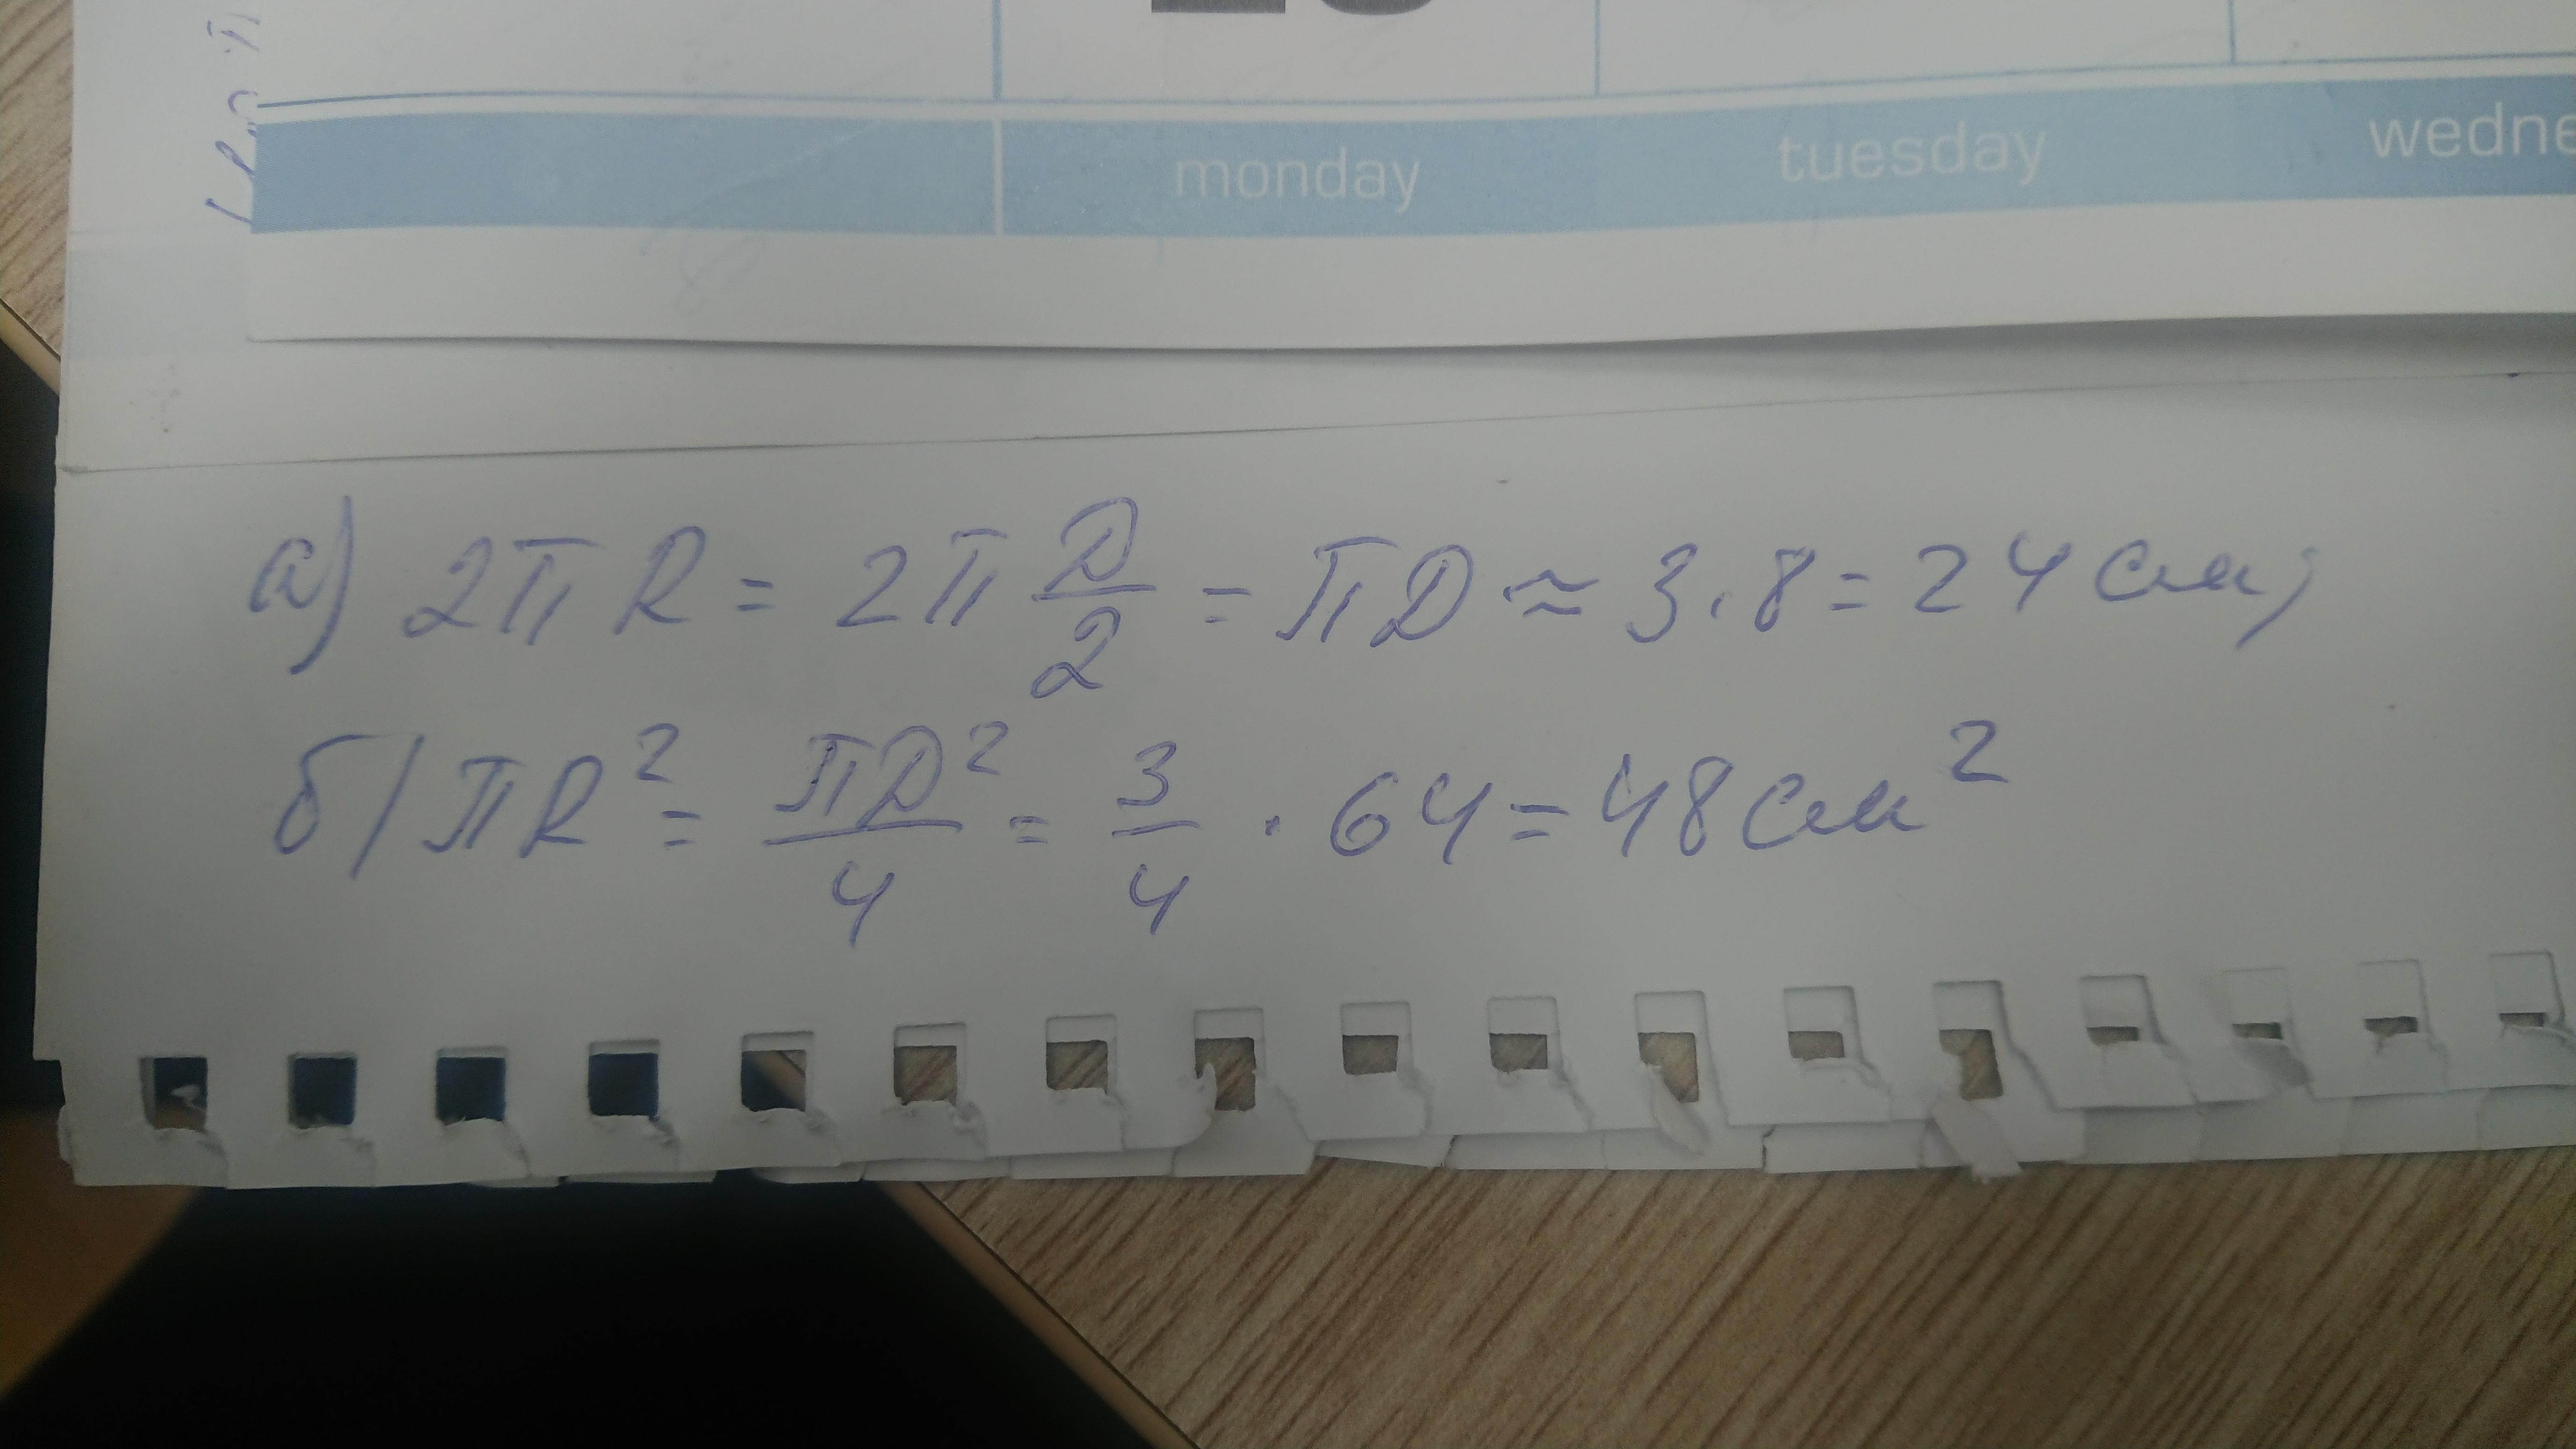 monday tuesday wedne
а) 2πR = 2π D/2 = πD ≈ 3·8 = 24 см;
б) πR² = πD²/4 = 3/4 · 64 = 48 см²